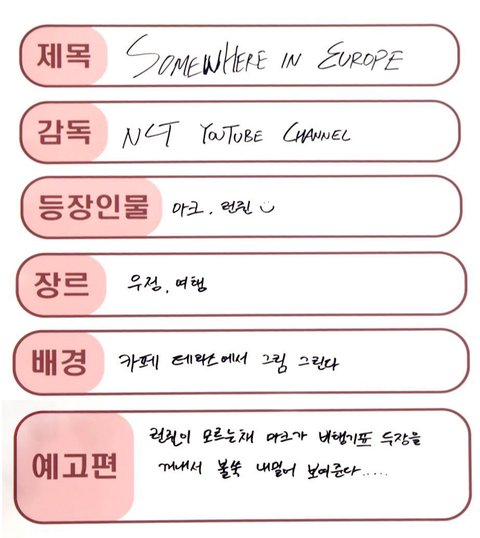 제목 SOMEWHERE IN EUROPE
감독 NCT YOUTUBE CHANNEL
등장인물 마크, 런쥔
장르 우정, 여행
배경 카페 테라스에서 그림 그린다
예고편 런쥔이 모르는채 마크가 비행기표 두장을
꺼내서 불쑥 내밀어 보여준다.....